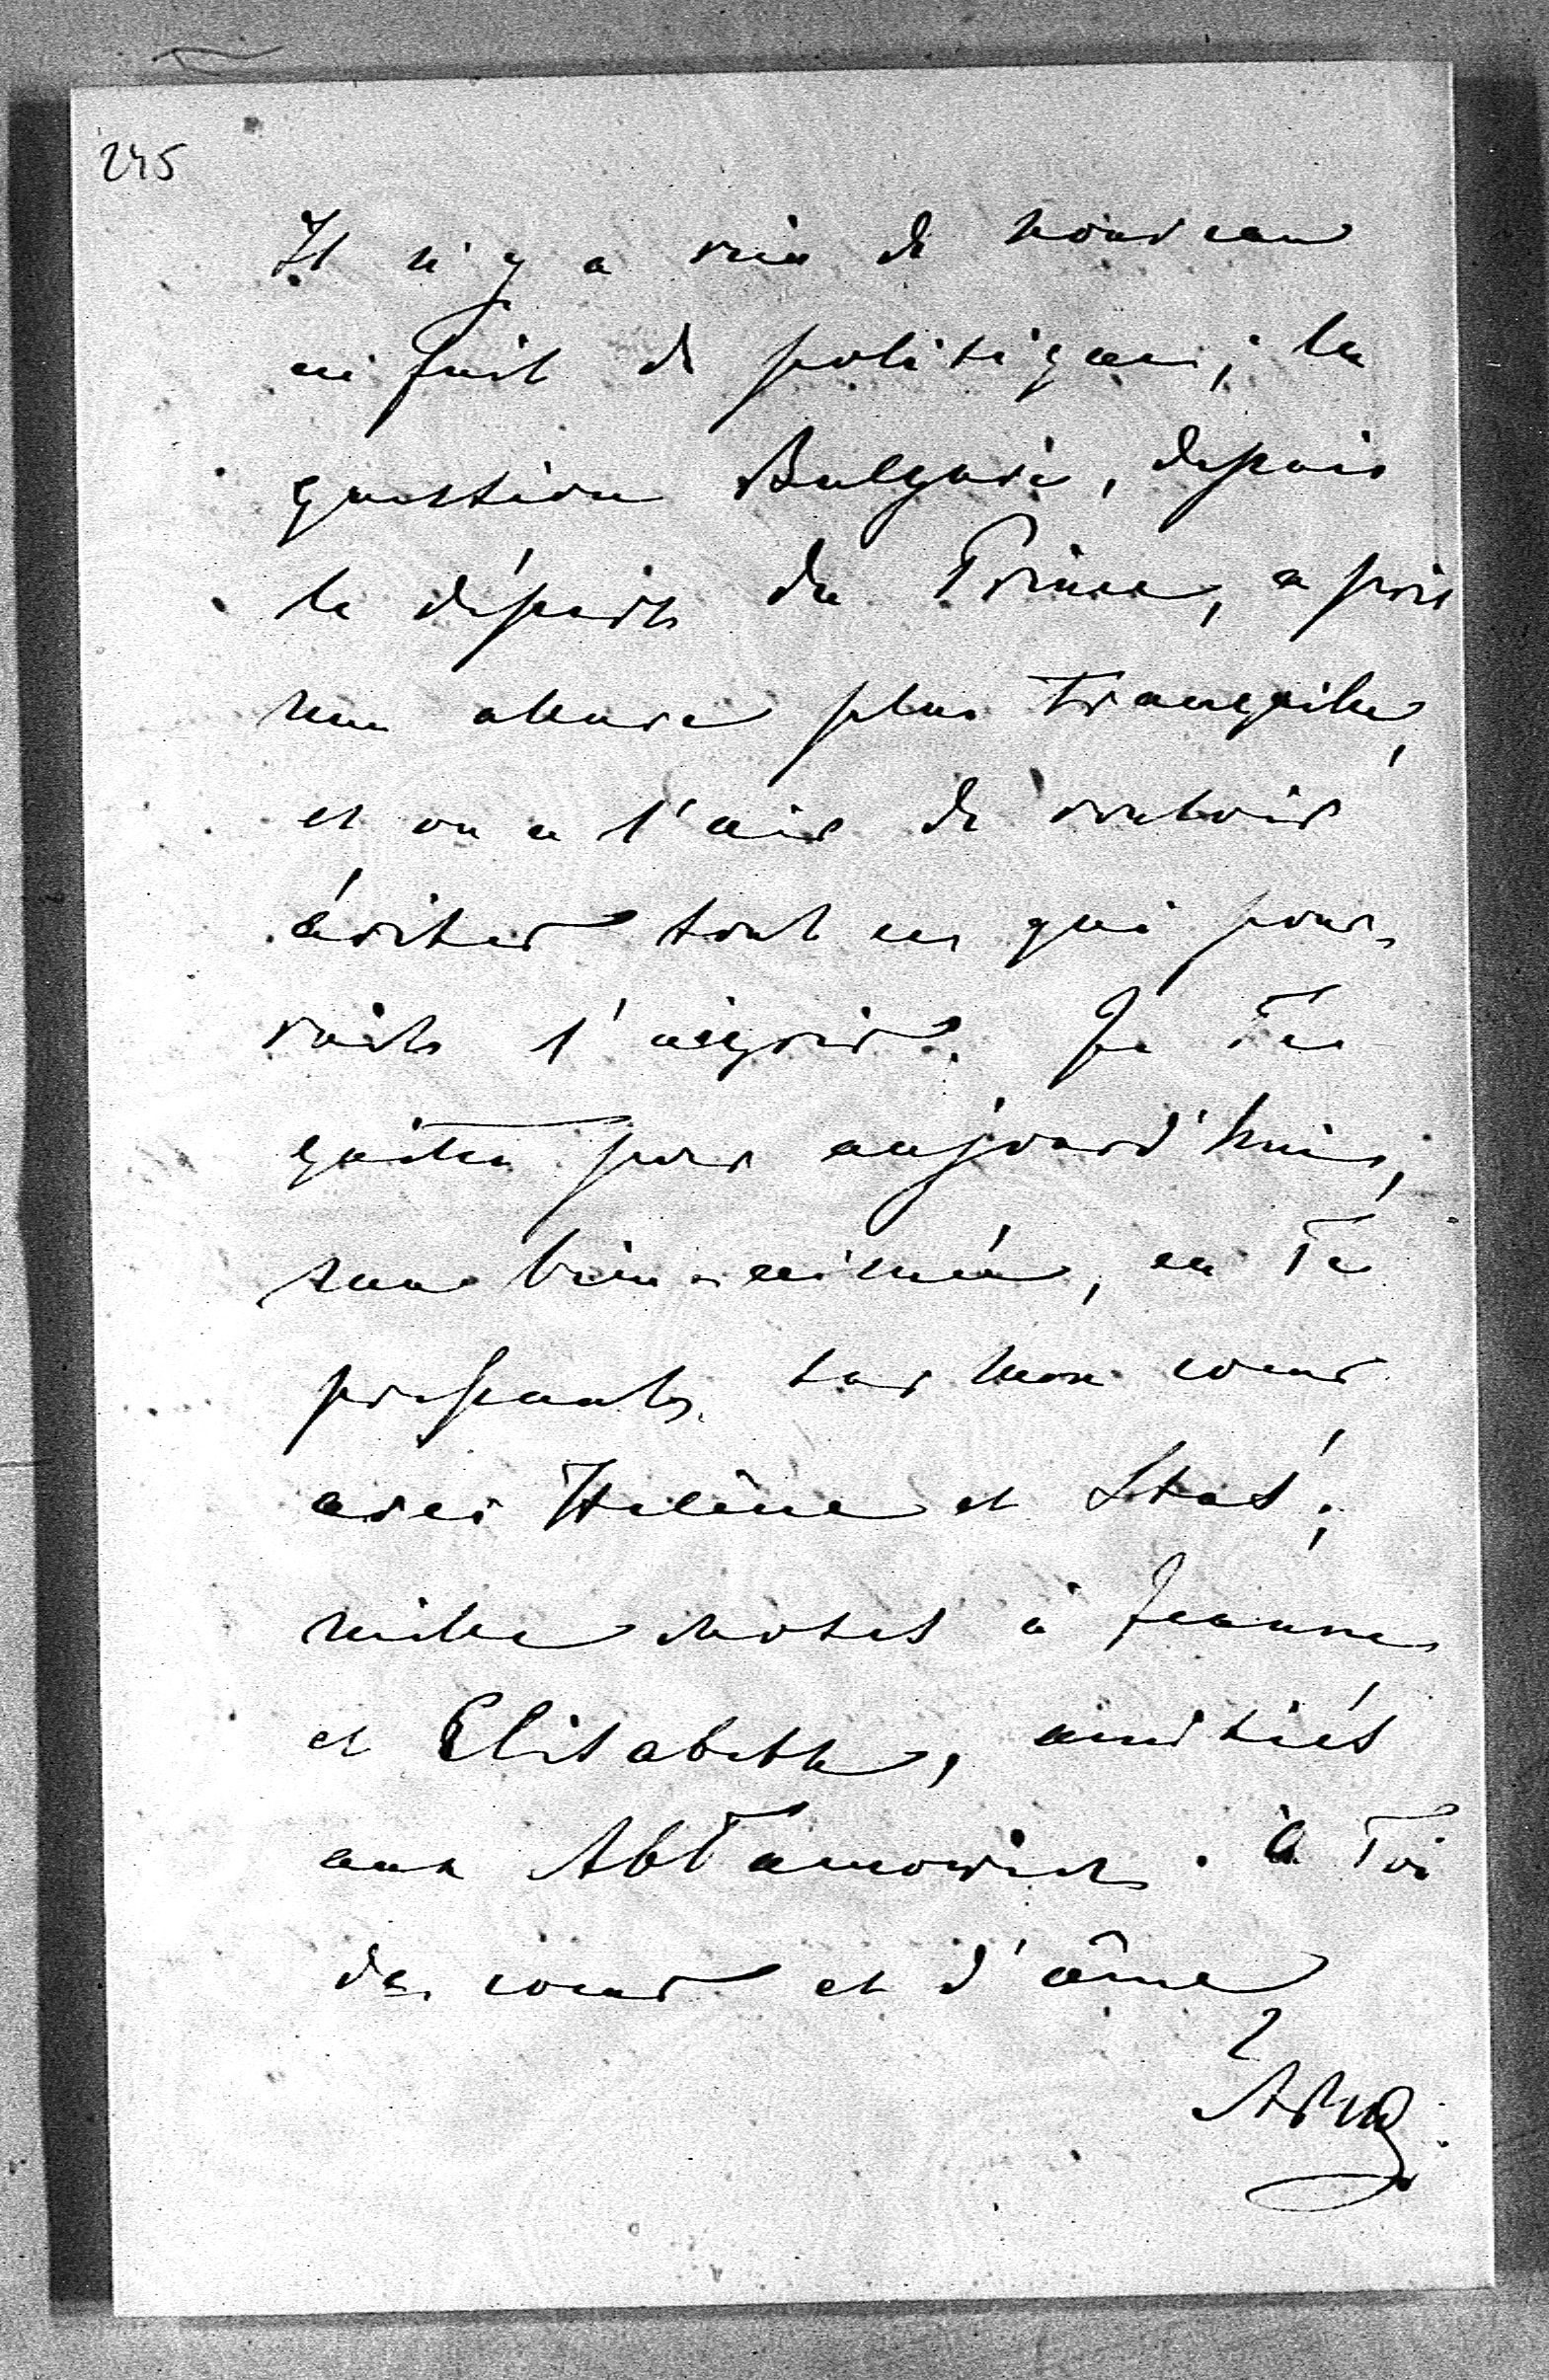 245
Il n'y a rien de nouveau
en fait de politique; la
question Bulgare, depuis
le départ du Prince, a pris
une allure plus tranquille,
et on a l'air de vouloir
éviter tout ce qui pour-
rait l'aigrir. Je Te
quitte pour aujourd'hui,
ma bien-aimée, en Te
pressant sur mon coeur
avec Hélène et Stas;
mille choses à Jeanne
et Elisabeth, amitiés
aux Abramowicz. à Toi
de coeur et d'âme